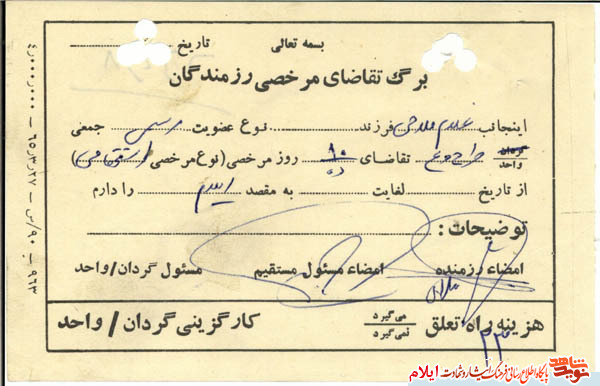 بسمه تعالی
تاریخ
برگ تقاضای مرخصی رزمندگان
اینجانب غلام ملاحی فرزند نوع عضویت جمعی
گردان/واحد تقاضای ۱۰ ده روز مرخصی (نوع مرخصی استحقاقی)
از تاریخ لغایت به مقصد ایلام را دارم
توضیحات:
امضاء رزمنده امضاء مسئول مستقیم مسئول گردان/واحد
هزینه راه تعلق می‌گیرد/نمی‌گیرد کارگزینی گردان/واحد
۲۳
نوید شاهد
پایگاه اطلاع رسانی فرهنگ ایثار و شهادت ایلام